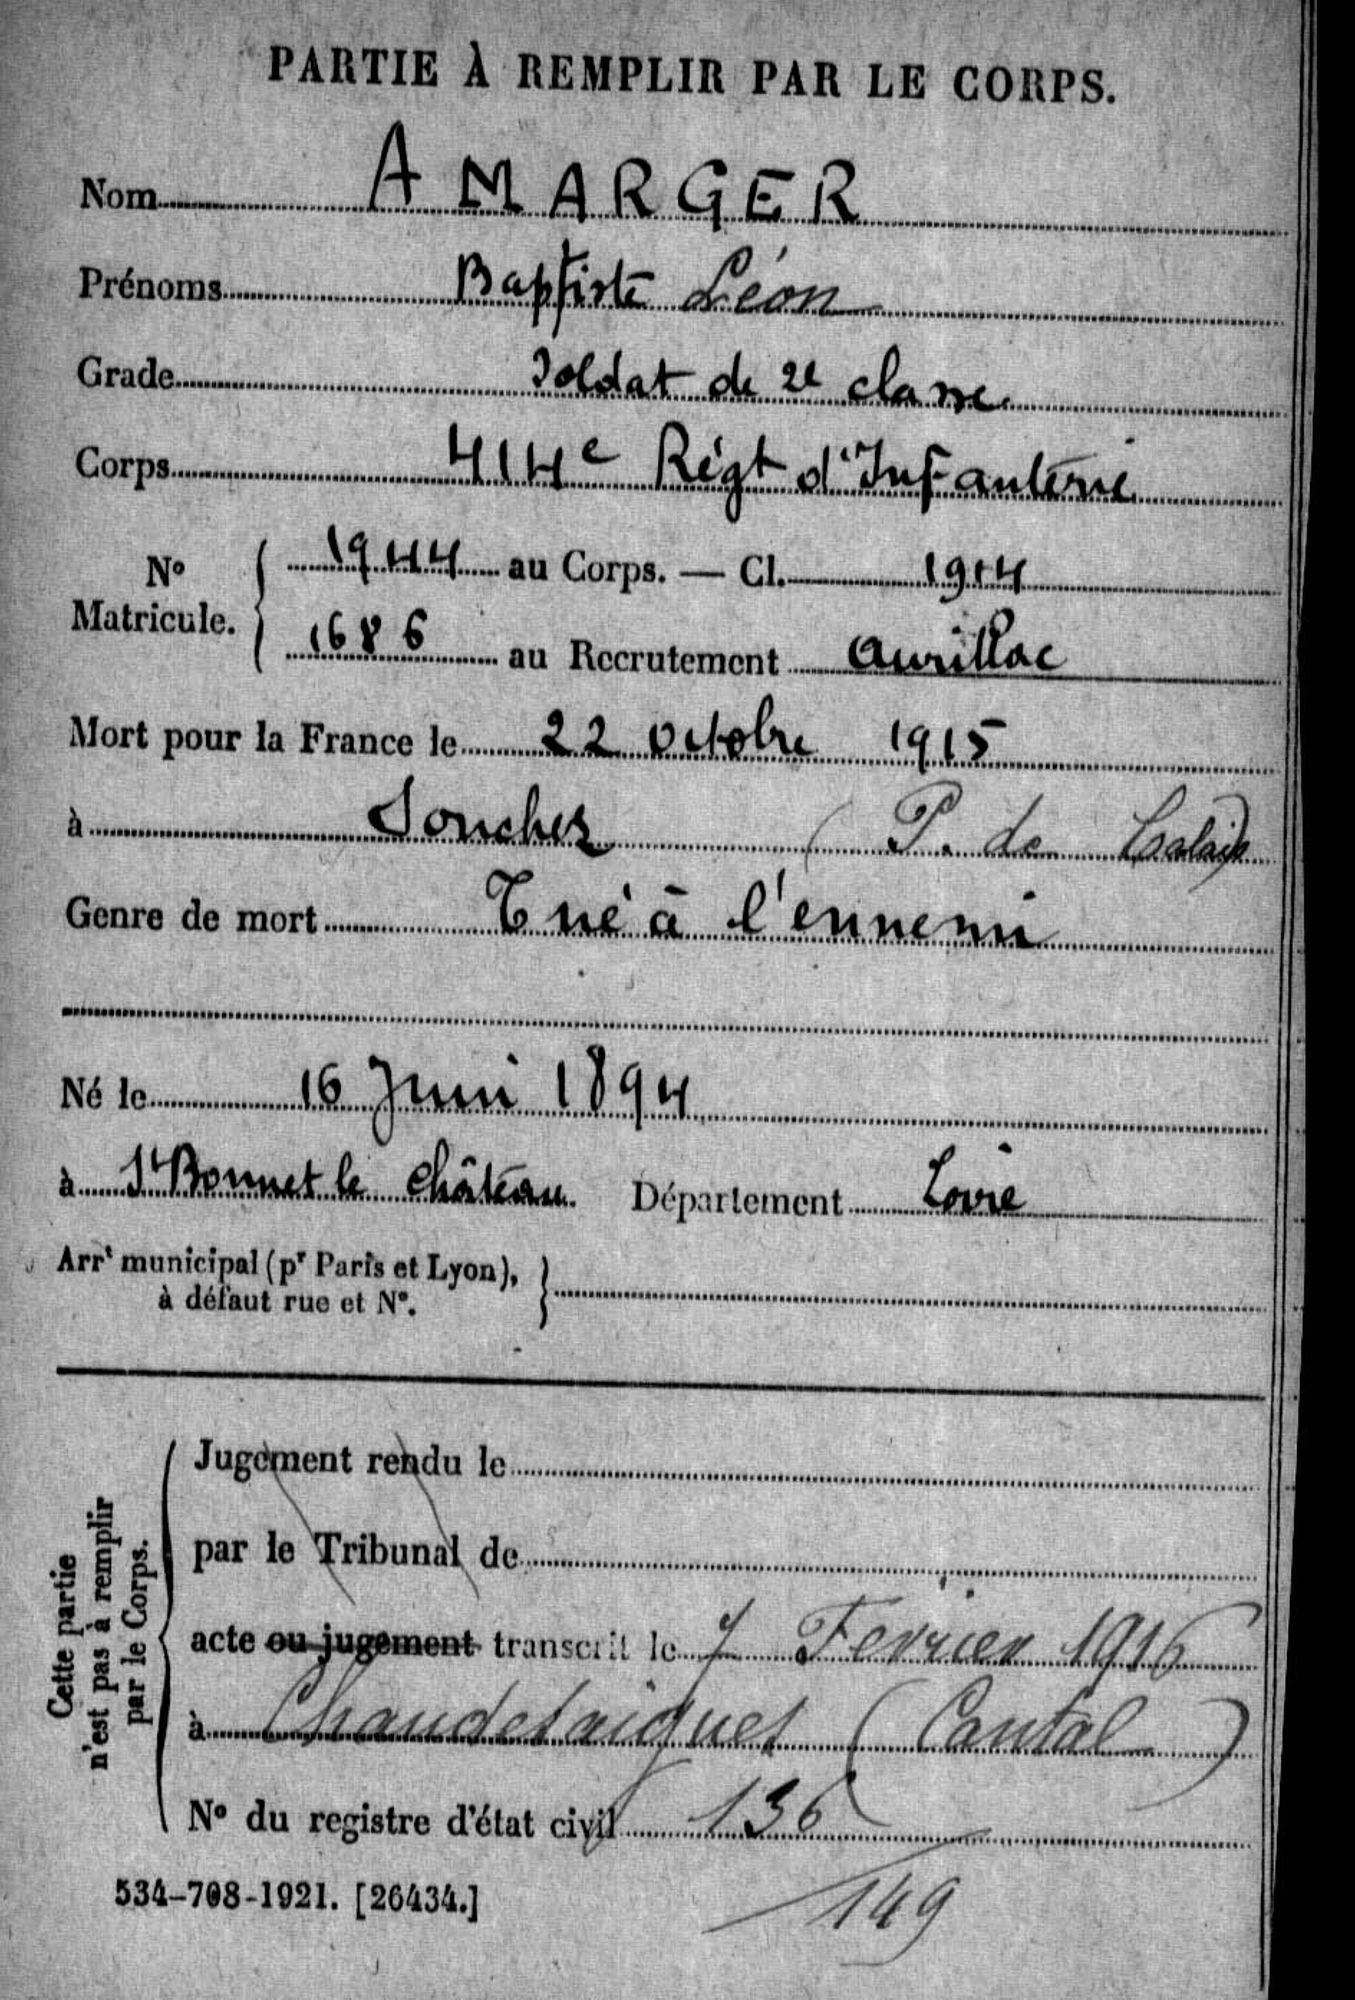 PARTIE À REMPLIR PAR LE CORPS.
Nom AMARGER
Prénoms Baptiste Léon
Grade Soldat de 2e classe
Corps 414e Régt d'Infanterie
No Matricule. { 1944 au Corps. — Cl. 1914
1686 au Recrutement Aurillac
Mort pour la France le 22 octobre 1915
à Souchez (P. de Calais)
Genre de mort Tué à l'ennemi
Né le 16 Juin 1894
à St Bonnet le Château Département Loire
Arrt municipal (pr Paris et Lyon), à défaut rue et No. }
Cette partie n'est pas à remplir par le Corps.
Jugement rendu le
par le Tribunal de
acte ou jugement transcrit le 7 Février 1916
à Chaudesaigues (Cantal)
No du registre d'état civil 136
149
534-708-1921. [26434.]